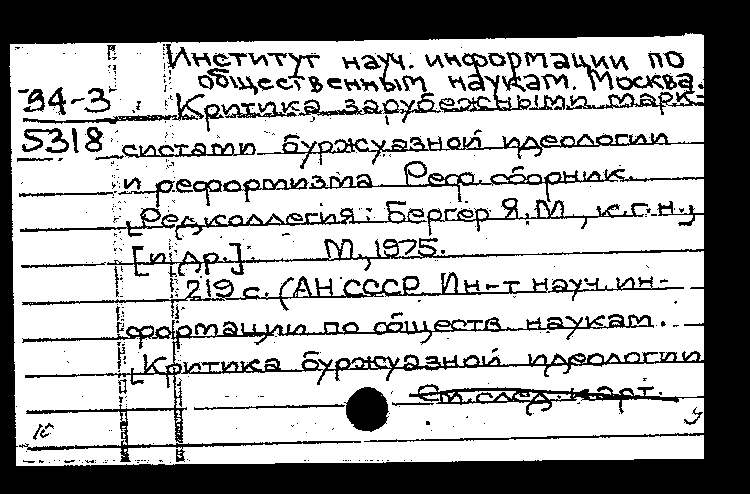 Институт науч. информации по
общественным наукам. Москва.
94-3 Критика зарубежными марк-
5318 систами буржуазной идеологии
и реформизма Реф. сборник.
[Ред.коллегия: Бергер Я.М., к.г.н.,
[и др.]. М., 1975.
219 с. (АН СССР Ин-т науч. ин-
формации по обществ. наукам.
[Критика буржуазной идеологии
См. след. карт.